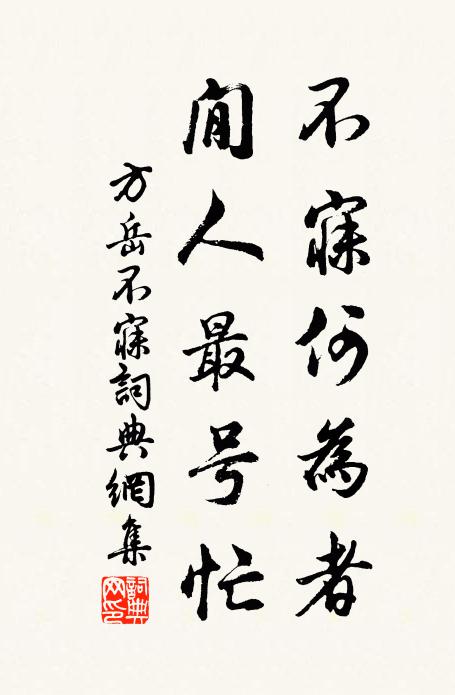 不寐何為者
閒人最号忙
方岳不寐詞典網集
詞典网印